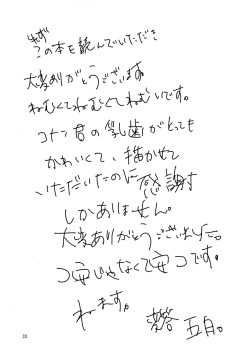 まず
この本を読んでいただき
大変ありがとうございます。
ねむくてねむくてねむいです。
コナン君の乳歯がとっても
かわいくて、描かせて
いただいたのに感謝
しかありません。
大変ありがとうございました。
コ安じゃなくて安コです。
ねます。
五月。
33